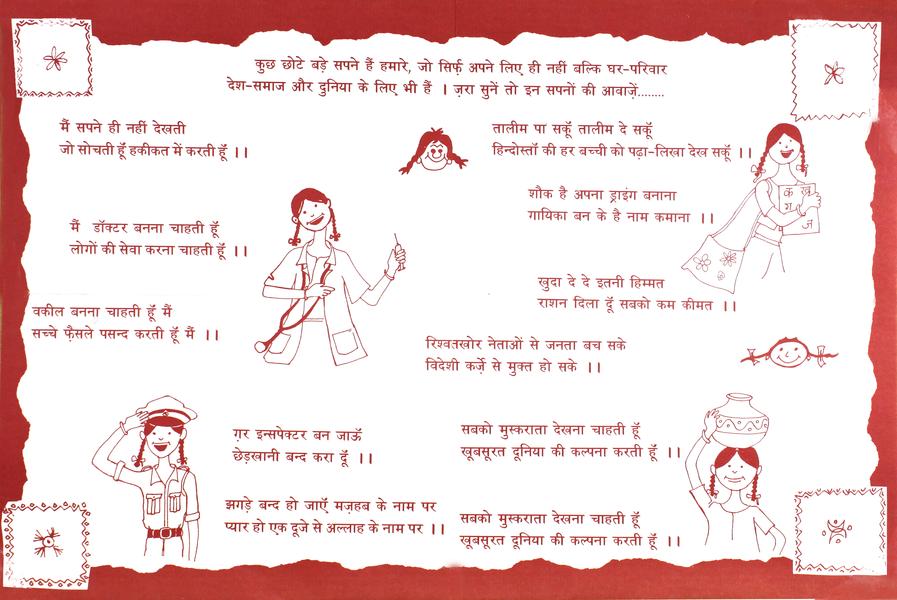 कुछ छोटे बड़े सपने हैं हमारे, जो सिर्फ़ अपने लिए ही नहीं बल्कि घर-परिवार
देश-समाज और दुनिया के लिए भी हैं । ज़रा सुनें तो इन सपनों की आवाज़ें........
मैं सपने ही नहीं देखती
जो सोचती हूँ हकीकत में करती हूँ ।।
मैं डॉक्टर बनना चाहती हूँ
लोगों की सेवा करना चाहती हूँ ।।
वकील बनना चाहती हूँ मैं
सच्चे फ़ैसले पसन्द करती हूँ मैं ।।
ग़र इन्सपेक्टर बन जाऊँ
छेड़खानी बन्द करा दूँ ।।
झगड़े बन्द हो जाएँ मज़हब के नाम पर
प्यार हो एक दूजे से अल्लाह के नाम पर ।।
तालीम पा सकूँ तालीम दे सकूँ
हिन्दोस्ताँ की हर बच्ची को पढ़ा-लिखा देख सकूँ ।।
शौक है अपना ड्राइंग बनाना
गायिका बन के है नाम कमाना ।।
खुदा दे दे इतनी हिम्मत
राशन दिला दूँ सबको कम कीमत ।।
रिश्वतखोर नेताओं से जनता बच सके
विदेशी कर्ज़े से मुक्त हो सके ।।
सबको मुस्कराता देखना चाहती हूँ
खूबसूरत दुनिया की कल्पना करती हूँ ।।
सबको मुस्कराता देखना चाहती हूँ
खूबसूरत दुनिया की कल्पना करती हूँ ।।
क ख
ग
ज